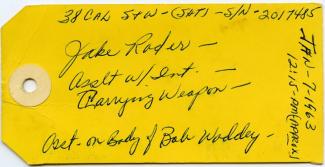 38 CAL S+W - (Sht) - S/N - 2017485
Jake Rader -
Asslt w/ Int. -
Carrying Weapon -
Asst. on Body of Bob Waddey -
JAN - 7 - 1963
12:15 - AM (Approx)